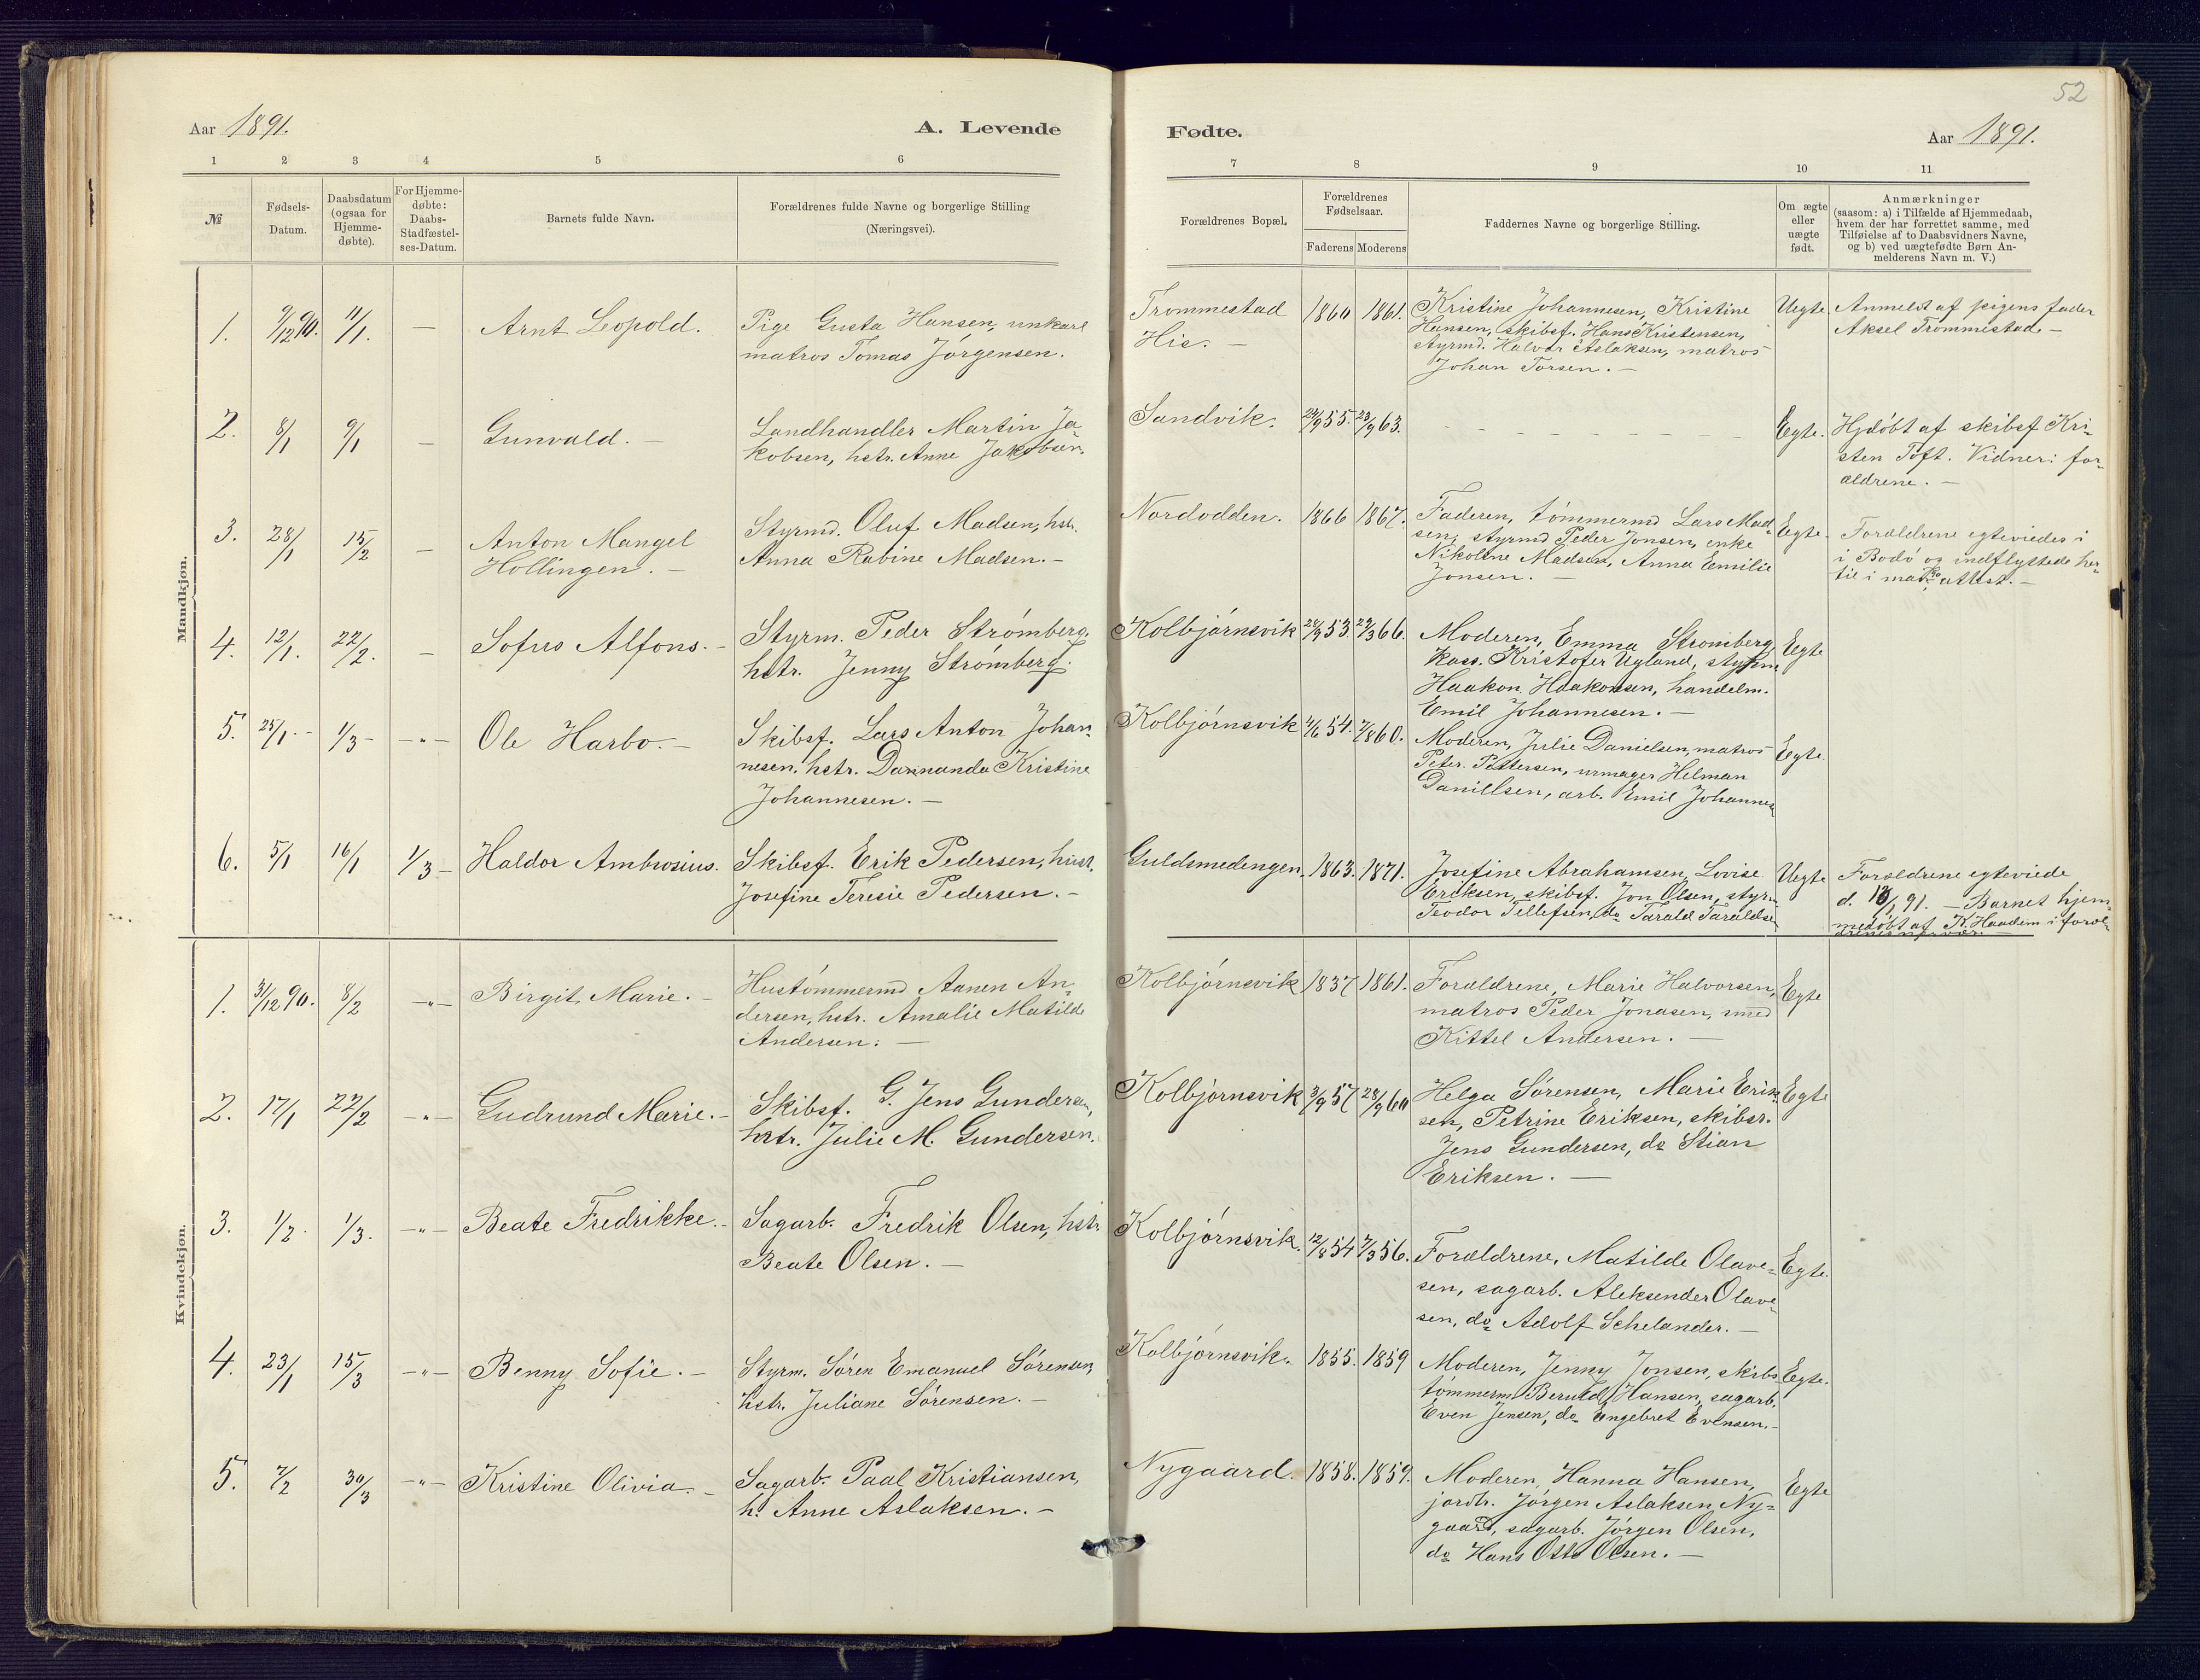 52
Aar 1891.
A. Levende
Fødte.
Aar 1891.
1 2 3 4 5 6
7 8 9 10 11
№
Fødsels-
Datum.
Daabsdatum
(ogsaa for
Hjemme-
døbte).
For Hjemme-
døbte:
Daabs-
Stadfæstel-
ses-Datum.
Barnets fulde Navn.
Forældrenes fulde Navne og borgerlige Stilling
(Næringsvei).
Forældrenes Bopæl.
Forældrenes
Fødselsaar.
Faderens Moderens
Faddernes Navne og borgerlige Stilling.
Om ægte
eller
uægte
født.
Anmærkninger
(saasom: a) i Tilfælde af Hjemmedaab,
hvem der har forrettet samme, med
Tilføielse af to Daabsvidners Navne,
og b) ved uægtefødte Børn An-
melderens Navn m. V.)
Mandkjøn.
1. 9/12 90. 11/1. — Arnt Leopold.
Pige Gusta Hansen, unkarl
matros Tomas Jørgensen.
Trommestad
His. —
1860 1861.
Kristine Johannesen, Kristine
Hansen, skibsf. Hans Kristensen,
styrmd. Halvor Aslaksen, matros
Johan Torsen. —
Uegte.
Anmeldt af pigens fader
Aksel Trommestad. —
2. 8/1 9/1 — Gunvald. —
Landhandler Martin Ja-
kobsen, hstr. Anne Jakobsen.
Sandvik. 24/9 55. 23/9 63.
Egte.
Hjdøbt af skibsf Kri-
sten Toft. Vidner: for-
ældrene. —
3. 28/1 15/2 — Anton Mangel
Hollingen. —
Styrmd. Oluf Madsen, hstr.
Anna Rabine Madsen. —
Nordodden. 1866 1867.
Faderen, tømmermd Lars Mad-
sen, styrmd Peder Jonsen, enke
Nikoline Madsen, Anna Emilie
Jonsen. —
Egte.
Forældrene egteviedes i
i Bodø og indflyttede her-
til i attest. —
4. 12/1. 22/2. — Sofus Alfons. —
Styrm. Peder Strømberg,
hstr. Jenny Strømberg.
Kolbjørnsvik 53. 66.
Moderen, Emma Stromberg,
Kass. Kristofer Ugland, styrm
Haakon Haakonsen, handelm.
Emil Johannesen. —
Egte
5. 25/1. — 1/3 — —"— Ole Harbo. —
Skibsf. Lars Anton Johan-
nesen, hstr. Dannanda Kristine
Johannesen. —
Kolbjørnsvik 4/6 54. 7/8 60.
Moderen, Julie Danielsen, matros
Peter Pettersen, urmager Helman
Danillsen, arb. Emil Johannes
Egte.
6. 5/1 16/1 1/3 — Haldor Ambrosius.
Skibsf. Erik Pedersen, hust.
Josefine Teresie Pedersen. —
Guldsmedengen. 1863. 1871.
Josefine Abrahamsen, Lovise
Eriksen, skibsf. Jon Olsen, styrm
Teodor Tellefsen, do Tarald Taraldsen
Uegte
Forældrene egteviede
d. 91. — Barnet hjem-
medøbt af K. Haadem i foræl-
drenes nærvær.
Kvindekjøn.
1. 31/12 90. 8/2 —"— Birgit Marie. —
Hustømmermd Aanen An-
dersen, hstr. Amalie Matilde
Andersen. —
Kolbjørnsvik 1837 1861.
Forældrene, Marie Halvorsen,
matros Peder Jonasen,
Kittel Andersen. —
Egte
2. 17/1 22/2 —"— Gudrund Marie. —
Skibsf. G. Jens Gundersen,
hstr. Julie M. Gundersen.
Kolbjornsvik 3/9 57 28/9 60
Helga Sørensen, Marie Erik-
sen, Petrine Eriksen, skibsr.
Jens Gundersen, do Stian
Eriksen. —
Egte
3. 1/2 1/3. —"— Beate Fredrikke. —
Sagarb. Fredrik Olsen, hstr.
Beate Olsen. —
Kolbjørnsvik. 12/8 54 7/3 56.
Forældrene, Matilde Olave-
sen, sagarb. Aleksender Olave-
sen, do Adolf Schelander. —
Egte.
4. 23/1 15/3 —"— Benny Sofie. —
Styrm. Søren Emanuel Sørensen,
hstr. Juliane Sørensen. —
Kolbjørnsvik. 1855. 1859
Moderen, Jenny Jonsen, skibs
tømmerm. Hansen, sagarb.
Even Jensen, do Engebret Evensen. —
Egte.
5. 7/2 30/3 —"— Kristine Olivia. —
Sagarb. Paal Kristiansen,
h. Anne Aslaksen. —
Nygaard. 1858. 1859.
Moderen, Hanna Hansen,
jordbr. Jørgen Aslaksen Ny-
gaard, sagarb. Jørgen Olsen,
do Hans Otto Olsen. —
Egte